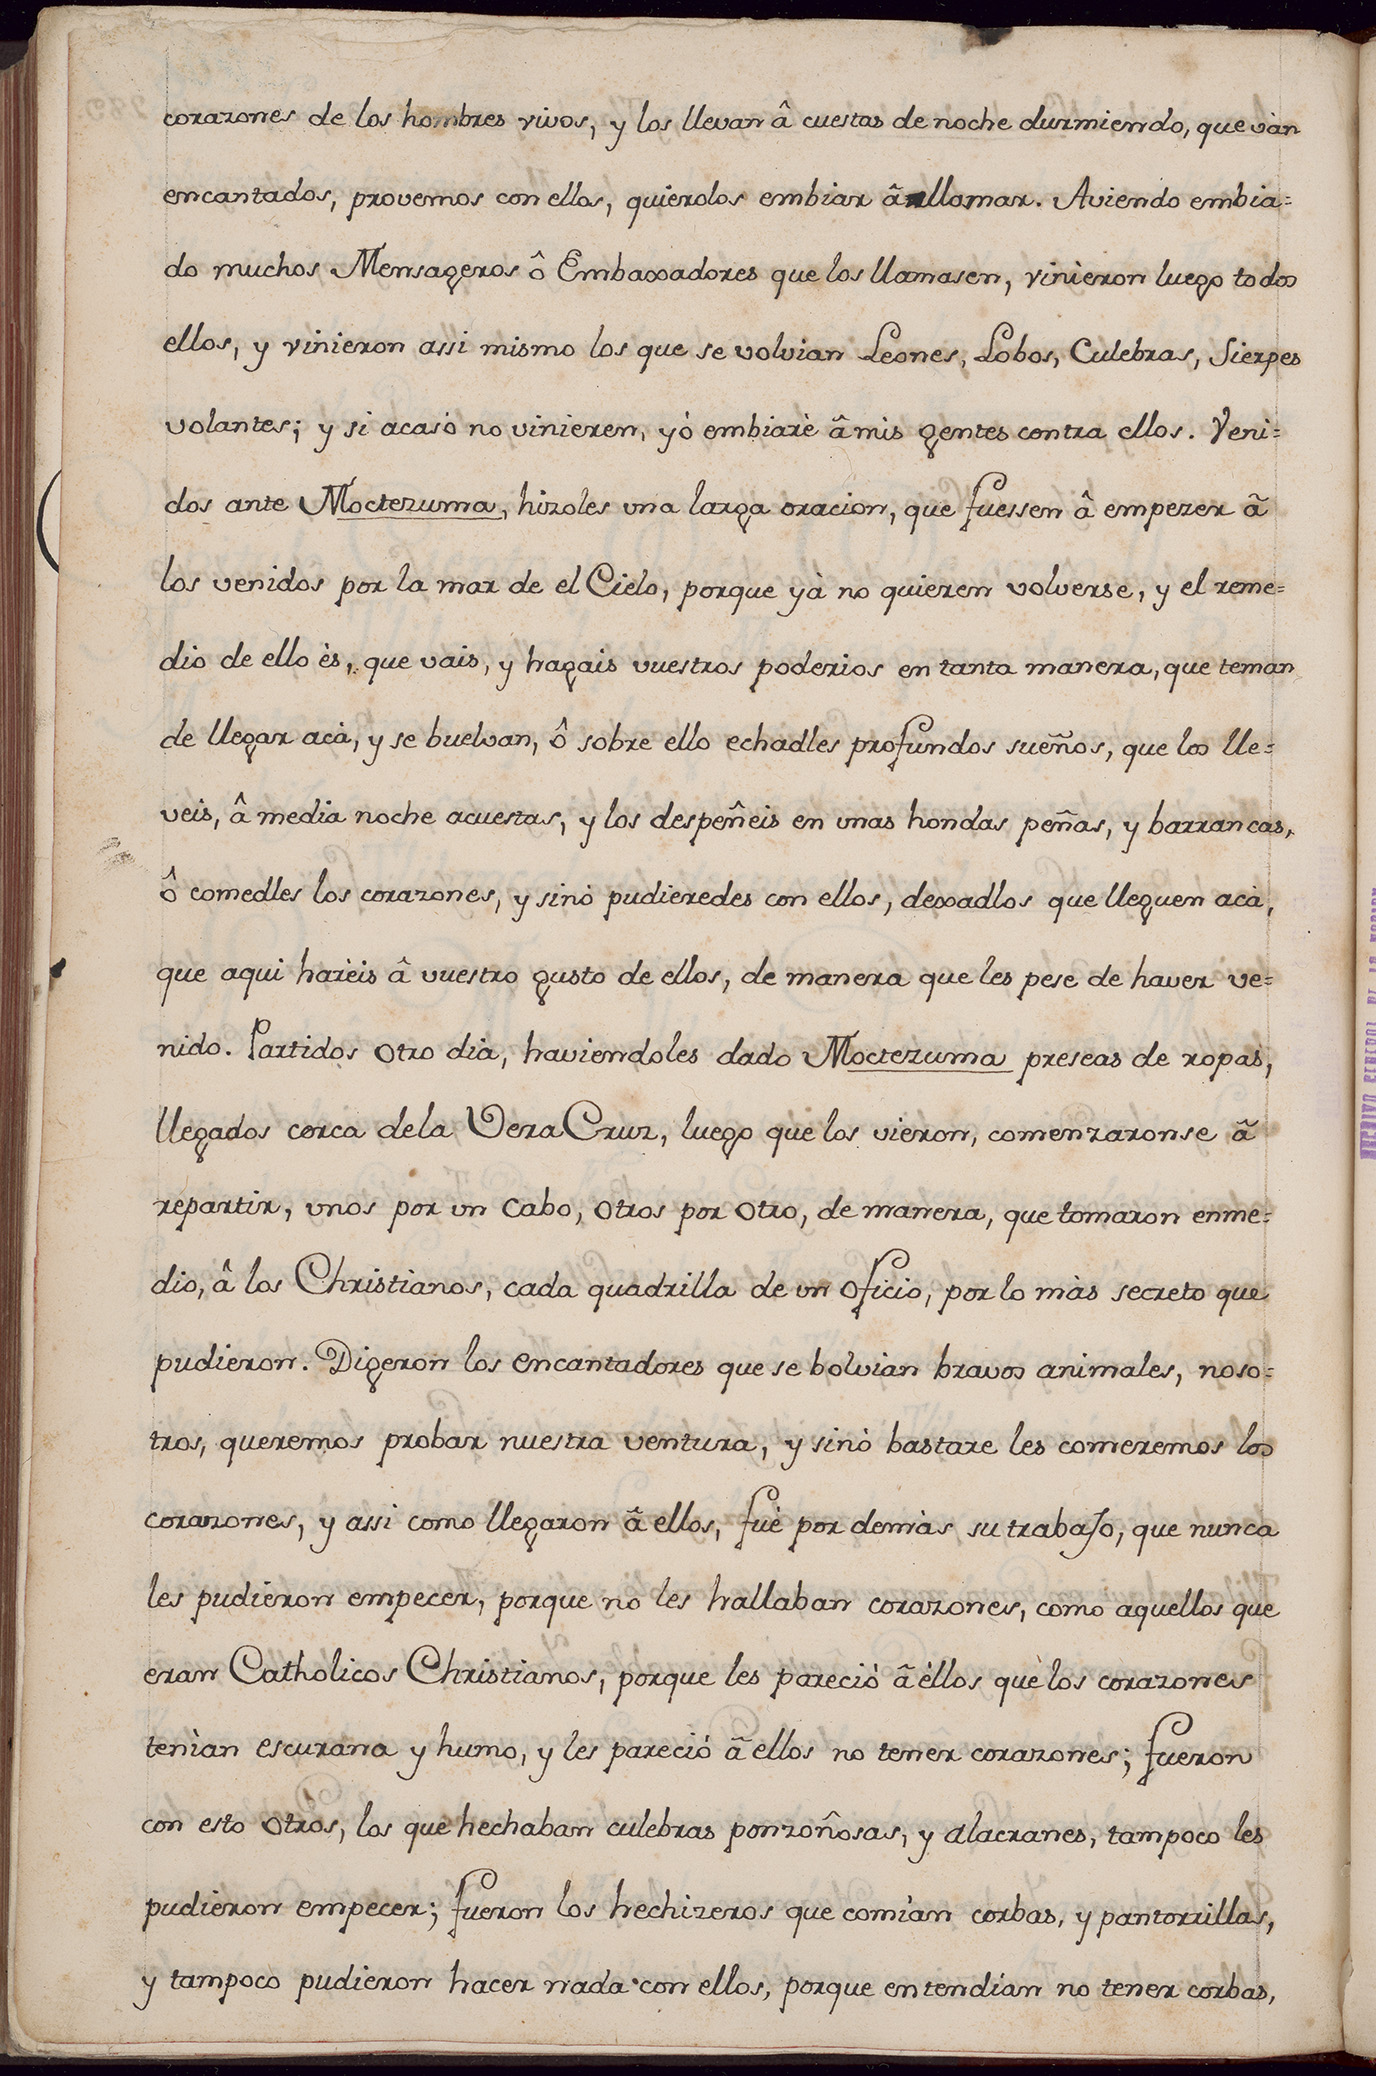 corazones de los hombres vivos, y los llevan â cuestas de noche durmiendo, que vàn
encantados, provemos con ellos, quierolos embiar â llamar. Aviendo embia=
do muchos Mensageros ô Embaxadores que los llamasen, vinieron luego todos
ellos, y vinieron assi mismo los que se volvian Leones, Lobos, Culebras, Sierpes
volantes; y si acasò no vinieren, yò embiarè â mis gentes contra ellos. Veni=
dos ante Moctezuma, hizoles una larga oracion, que fuessen â empezer ã
los venidos por la mar de el Cielo, porque yà no quieren volverse, y el reme=
dio de ello ès, que vais, y hagais vuestros poderios en tanta manera, que teman
de llegar acà, y se buelvan, ô sobre ello echadles profundos sueños, que los lle=
veis, â media noche acuestas, y los despeñeis en unas hondas peñas, y barrancas,
ô comedles los corazones, y sinò pudieredes con ellos, dexadlos que lleguen acà,
que aqui harèis â vuestro gusto de ellos, de manera que les pese de haver ve=
nido. Partidos otro dia, haviendoles dado Moctezuma preseas de ropas,
llegados cerca dela Vera Cruz, luego que los vieron, comenzaronse ã
repartir, unos por un cabo, otros por otro, de manera, que tomaron enme=
dio, â los Christianos, cada quadrilla de un oficio, por lo màs secreto que
pudieron. Digeron los encantadores que se bolvian bravos animales, noso=
tros, queremos probar nuestra ventura, y sinò bastare les comeremos los
corazones, y assi como llegaron ã ellos, fuè por demàs su trabajo, que nunca
les pudieron empecer, porque no les hallaban corazones, como aquellos que
eran Catholicos Christianos, porque les pareciò ã èllos que los corazones
tenian escurana y humo, y les pareciò ã ellos no tener corazones; fueron
con esto otros, los que hechaban culebras ponzoñosas, y alacranes, tampoco les
pudieron empecer; fueron los hechizeros que comian corbas, y pantorrillas,
y tampoco pudieron hacer nada con ellos, porque entendian no tener corbas,